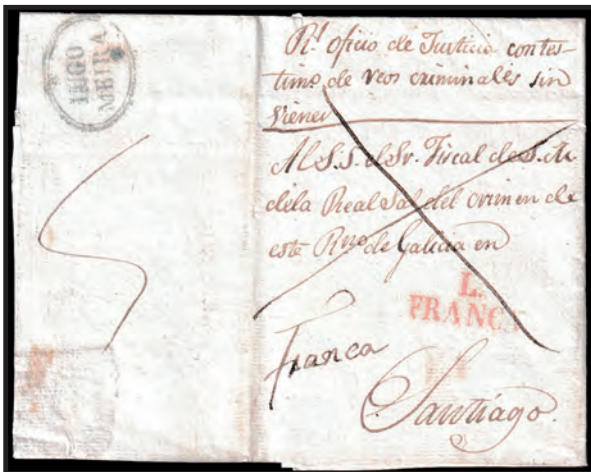 Rl. oficio de Justicia con tes-
timo. de reos criminales sin
vienes
Al S.S. el Sr. Fiscal de S.M.
de la Real Sal del crimen de
este Rno. de Galicia en
L.
FRANC
Franca
Santiago.
MEIRA